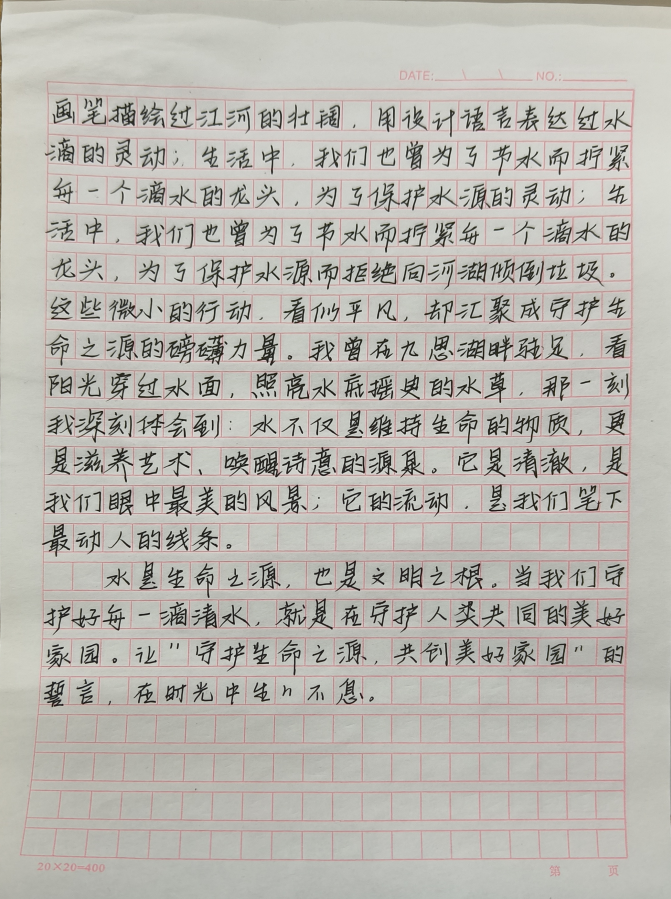 DATE: \ \ NO.:
画笔描绘过江河的壮阔，用设计语言表达过水
滴的灵动；生活中，我们也曾为了节水而拧紧
每一个滴水的龙头，为了保护水源的灵动；生
活中，我们也曾为了节水而拧紧每一个滴水的
龙头，为了保护水源而拒绝向河湖倾倒垃圾。
这些微小的行动，看似平凡，却汇聚成守护生
命之源的磅礴力量。我曾在九思湖畔驻足，看
阳光穿过水面，照亮水底摇曳的水草，那一刻
我深刻体会到：水不仅是维持生命的物质，更
是滋养艺术、唤醒诗意的源泉。它是清澈，是
我们眼中最美的风景；它的流动，是我们笔下
最动人的线条。
水是生命之源，也是文明之根。当我们守
护好每一滴清水，就是在守护人类共同的美好
家园。让"守护生命之源，共创美好家园"的
誓言，在时光中生n不息。
20×20=400 第 页